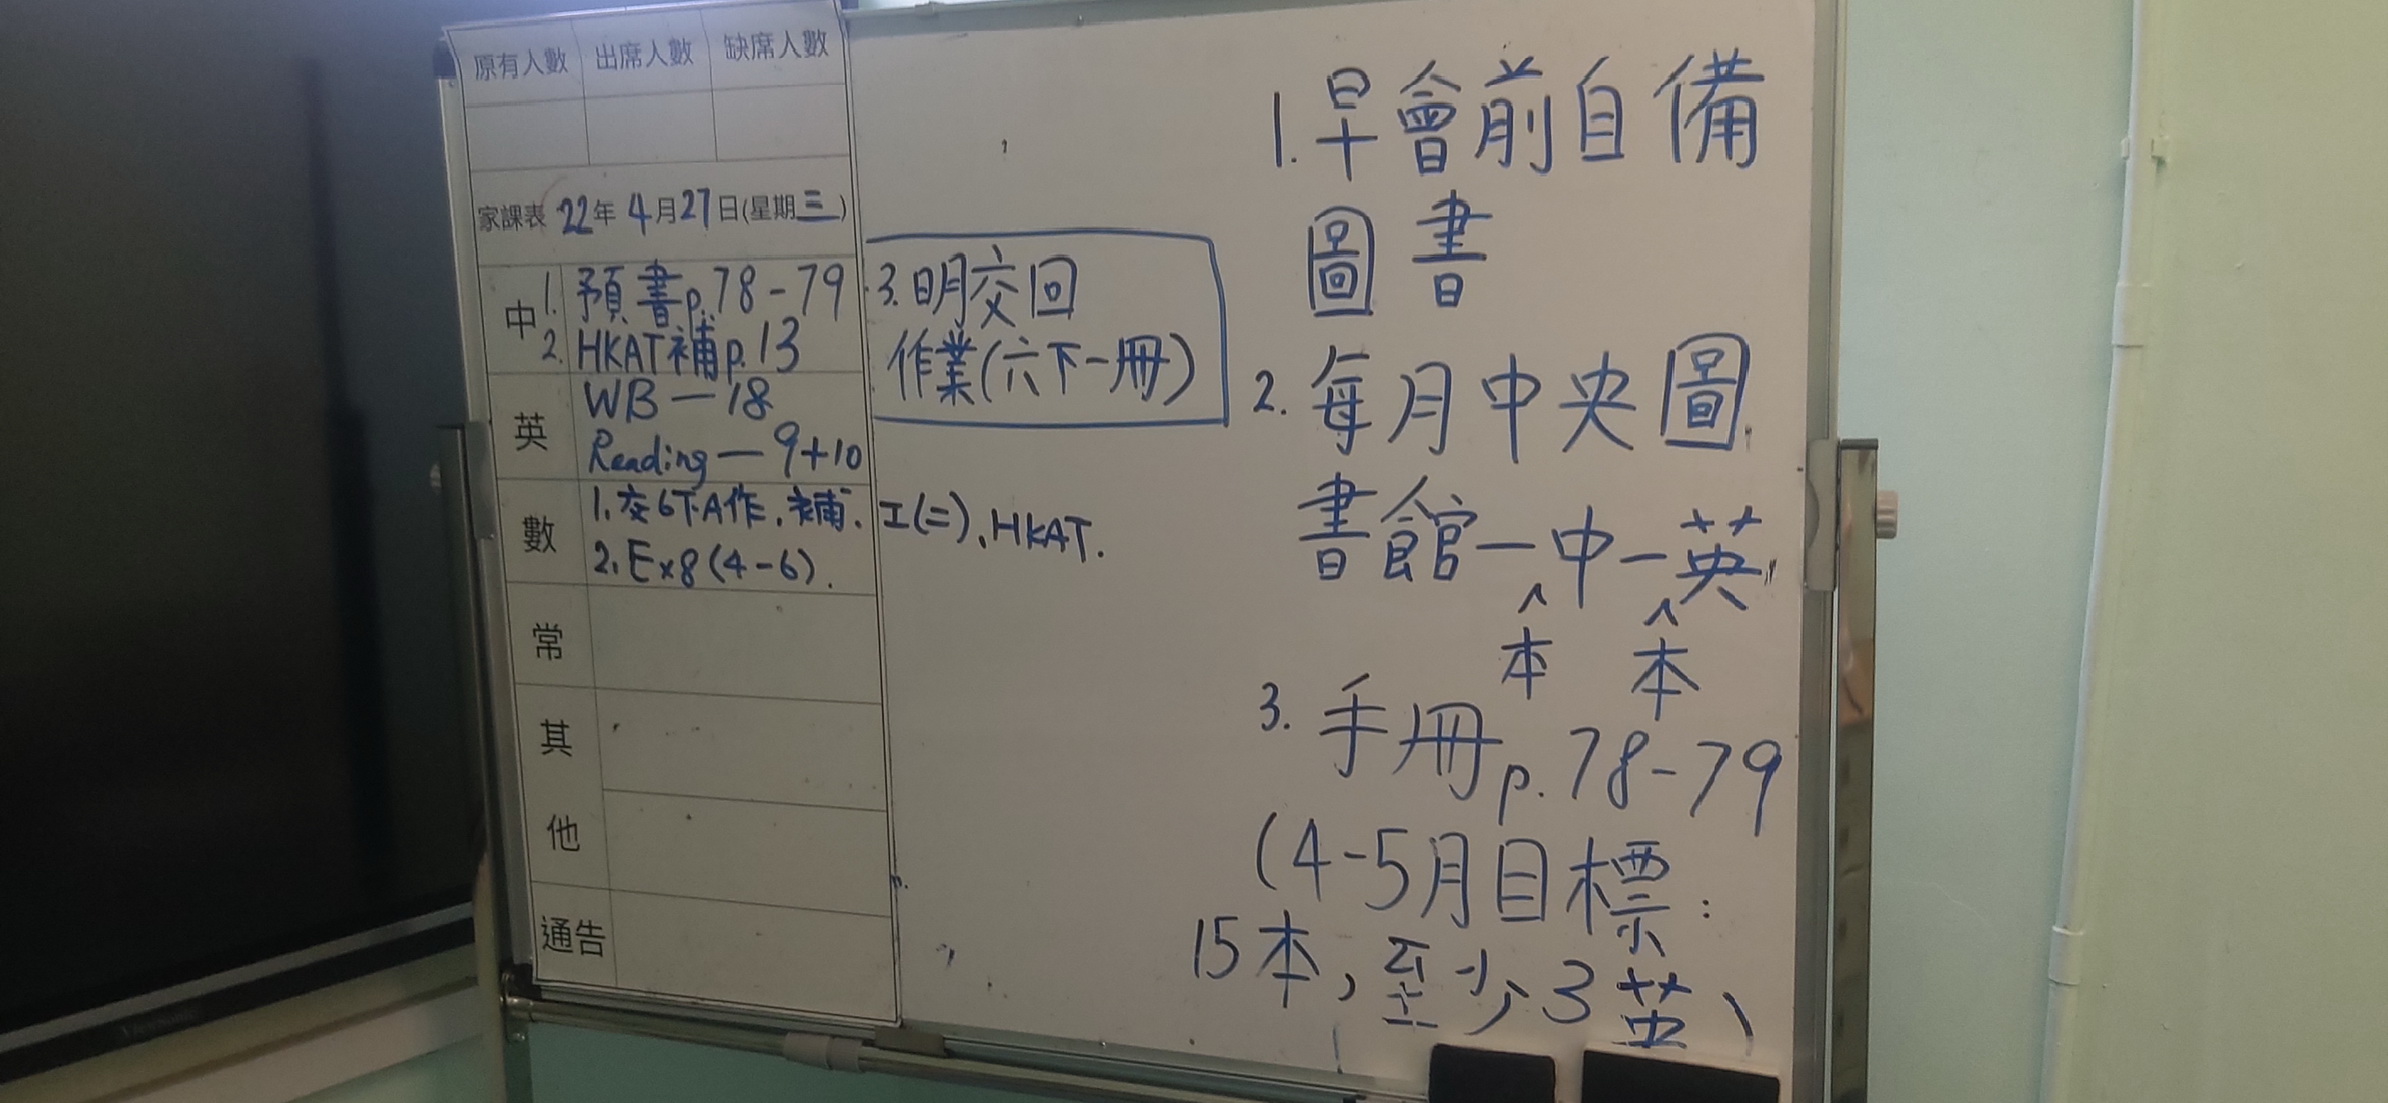 原有人數 出席人數 缺席人數
家課表 22年 4月27日(星期三)
中 1. 預書p.78-79
2. HKAT補p.13
3. 明交回
作業(六下一冊)
英 WB — 18
Reading — 9+10
數 1. 交6下A作、補、工(二)、HKAT.
2. Ex8(4-6).
常
其
他
通告
1. 早會前自備
圖書
2. 每月中央圖
書館一中一英
本 本
3. 手冊p.78-79
(4-5月目標:
15本,至少3英)